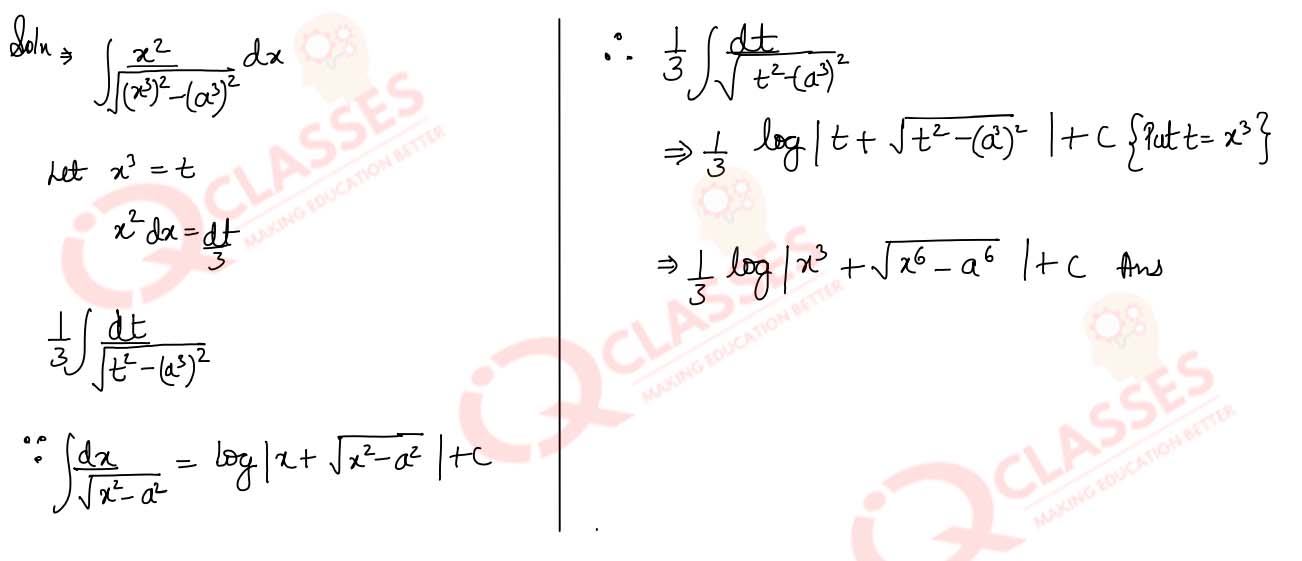 Soln ⇒ ∫ x²/√((x³)²-(a³)²) dx
Let x³ = t
x²dx = dt/3
1/3 ∫ dt/√(t²-(a³)²)
∵ ∫ dx/√(x²-a²) = log|x+√(x²-a²)|+C
∴ 1/3 ∫ dt/√(t²-(a³)²)
⇒ 1/3 log|t+√(t²-(a³)²)|+C {Put t=x³}
⇒ 1/3 log|x³+√(x⁶-a⁶)|+C Ans
iQ CLASSES
MAKING EDUCATION BETTER
iQ CLASSES
MAKING EDUCATION BETTER
iQ CLASSES
MAKING EDUCATION BETTER